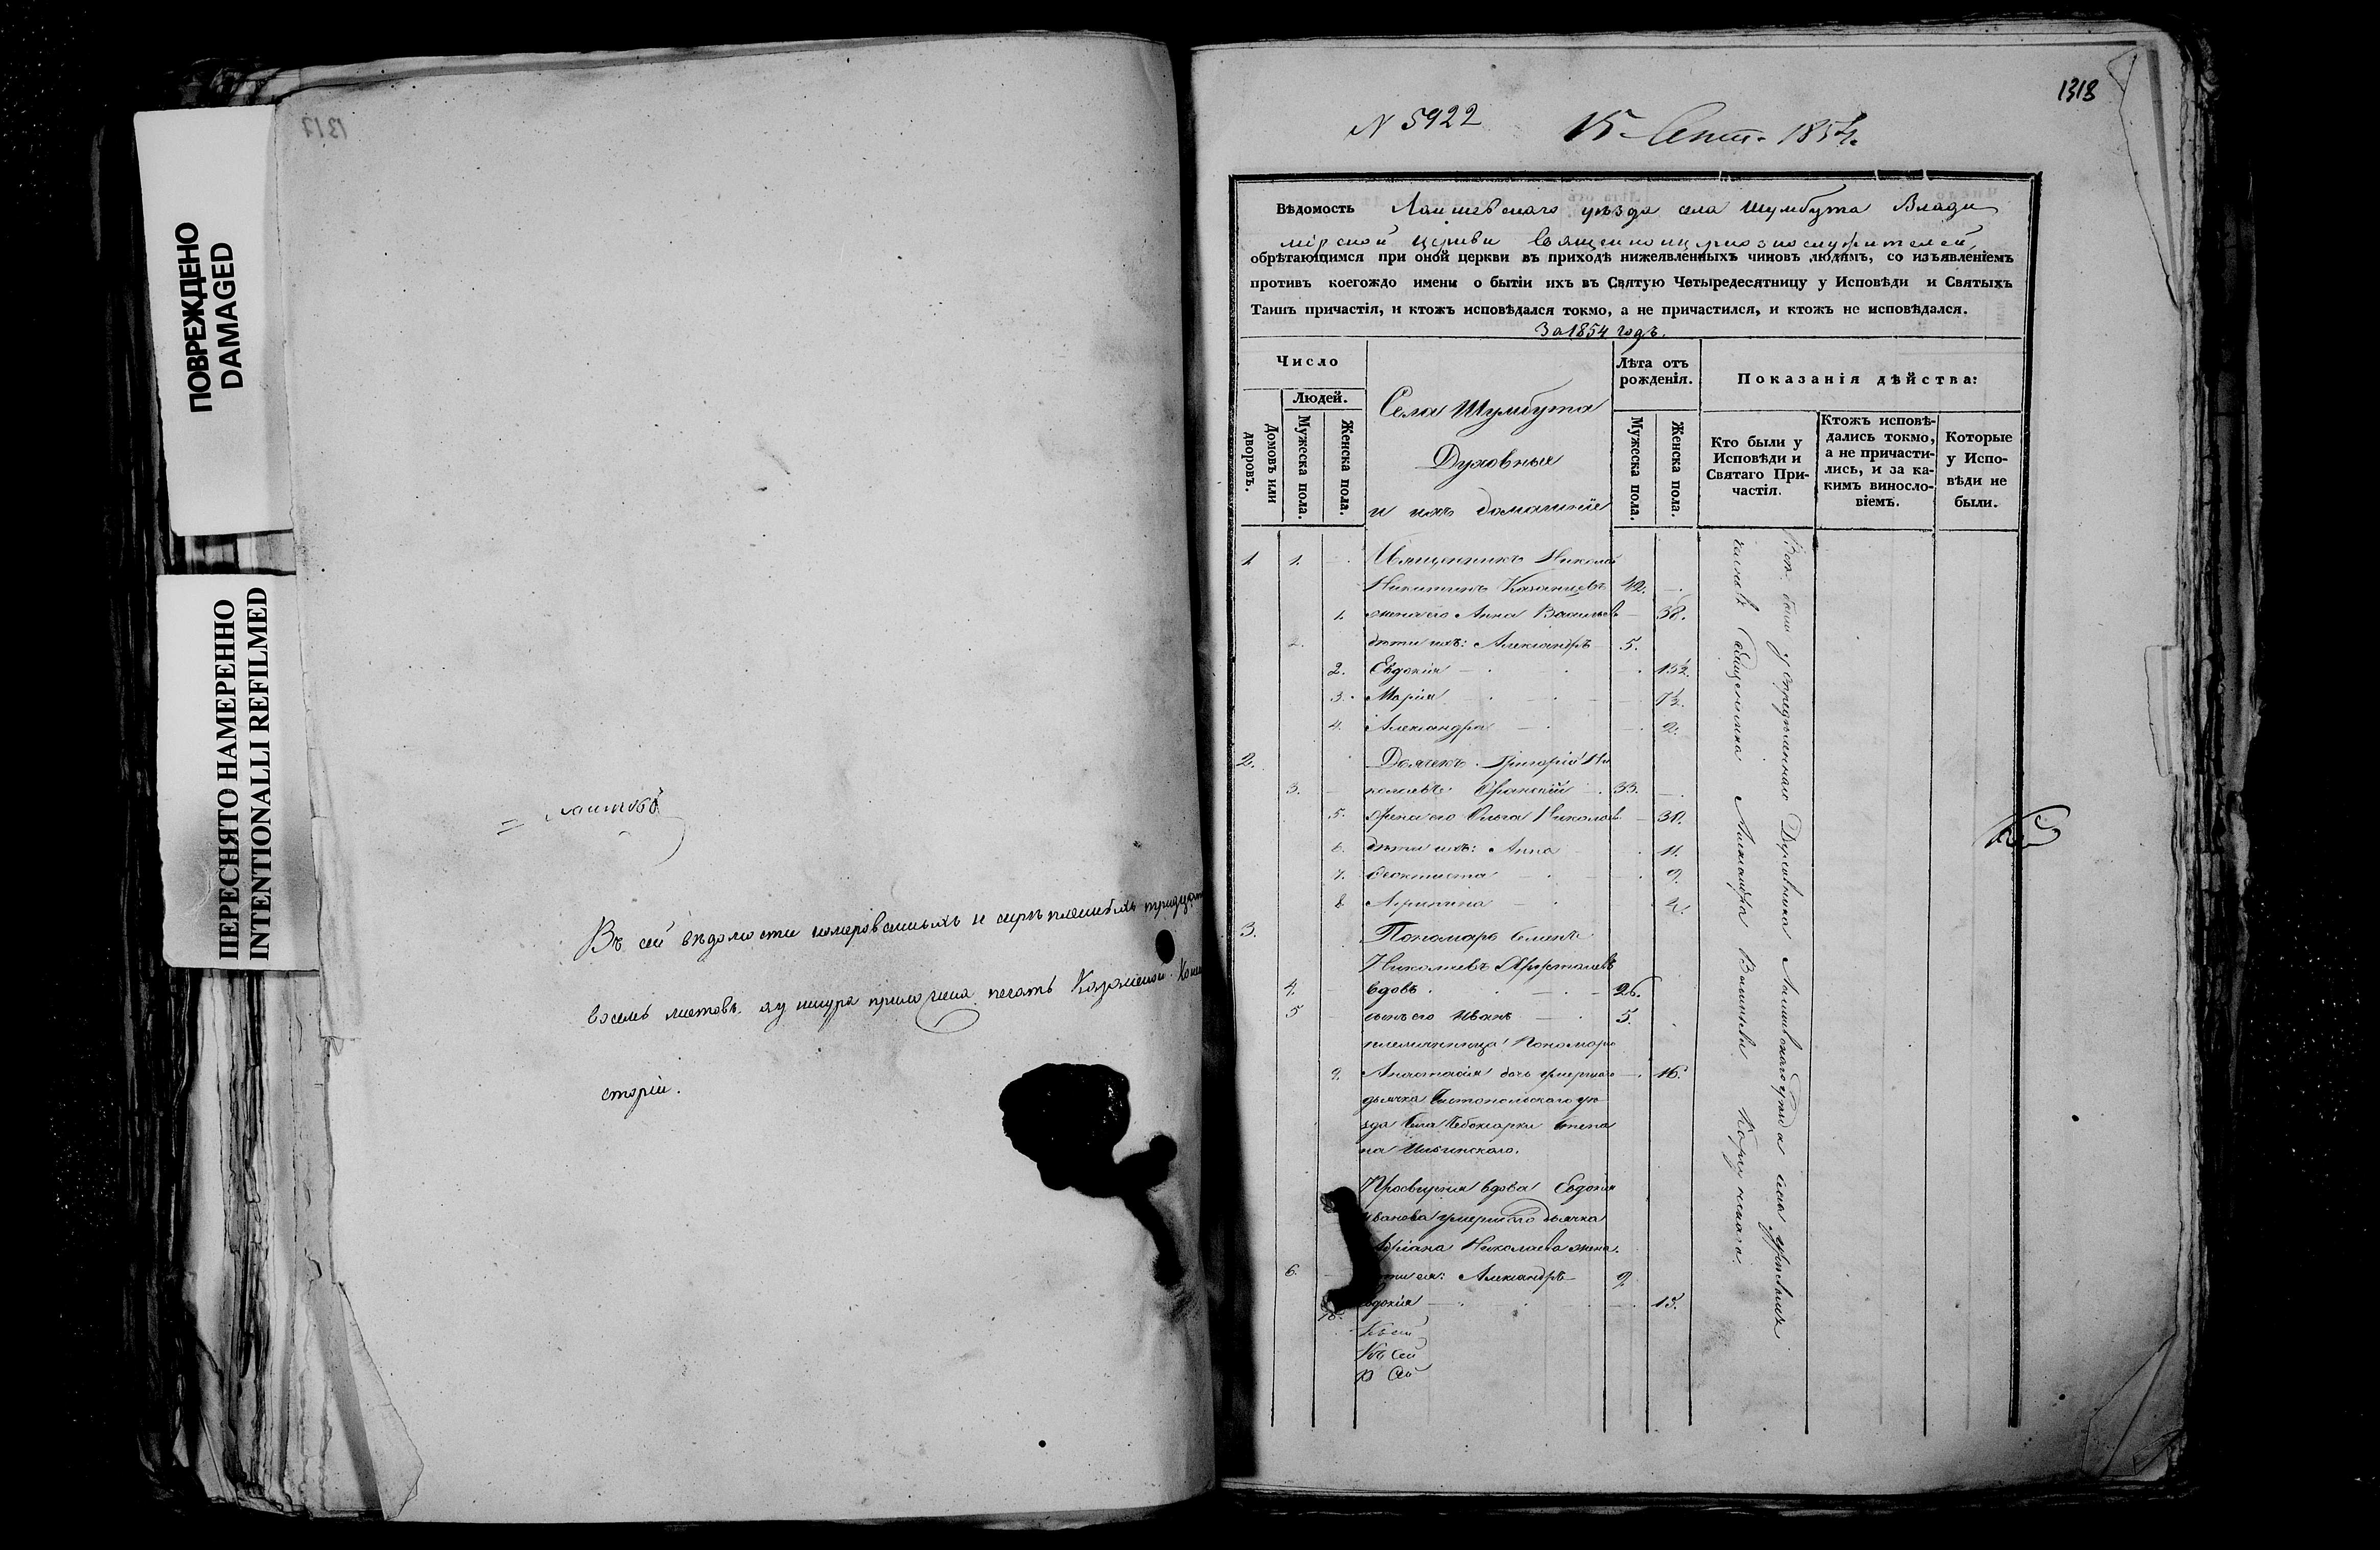 ПОВРЕЖДЕНО
DAMAGED
ПЕРЕСНЯТО НАМЕРЕННО
INTENTIONALLI REFILMED
1317
Въ сей вѣдомости номерованныхъ и скрѣпленныхъ тридцать
восемь листовъ. къ шнуру приложена печать Казанской Конси
сторіи.
1318
N 5922
15 Сент. 1854.
Вѣдомость Лаишевскаго уѣзда села Шумбута Влади
мірской церкви Священноцерковнослужителей,
обрѣтающимся при оной церкви въ приходѣ нижеявленныхъ чиновъ людямъ, со изъявленіемъ
противъ коегождо имени о бытіи ихъ въ Святую Четыредесятницу у Исповѣди и Святыхъ
Таинъ причастія, и ктожъ исповѣдался токмо, а не причастился, и ктожъ не исповѣдался.
За 1854 годъ.
Число
Людей.
Домовъ или дворовъ.
Мужеска пола.
Женска пола.
Села Шумбута
Духовные
и ихъ домашніе
Лѣта отъ рожденія.
Мужеска пола.
Женска пола.
Показанія дѣйства:
Кто были у Исповѣди и Святаго При-частія.
Ктожъ исповѣ-дались токмо, а не причасти-лись, и за ка-кимъ винословіемъ.
Которые у Испо-вѣди не были.
1 1. Священникъ Николай
Никитинъ Казанцевъ 42.
1. жена его Анна Васильев 38.
2. дѣти ихъ: Александръ 5.
2. Евдокія 13½.
3. Марія 7½.
4. Александра 2.
2. Дьячекъ Григорій Ни
3. колаевъ 33.
5. Жена его Ольга Николаев 30.
6. дѣти ихъ: Анна 11.
7. Феоктиста 9.
8. Агрипина 4.
3. Пономарь Семенъ
Николаевъ
4. вдовъ 26.
5 сынъ его Иванъ 5.
племянница Пономаря
9. Анастасія дочь умершаго 16.
дьячка Чистопольскаго уѣ
зда Села Чебоксарки Степа
на Ильинскаго.
Просвирня вдова Евдокія
Иванова умершаго дьячка
Адріана Николаева жена.
6. дѣти ея: Александръ 9
Евдокія 15.
Къ сей
Къ сей
К Сей